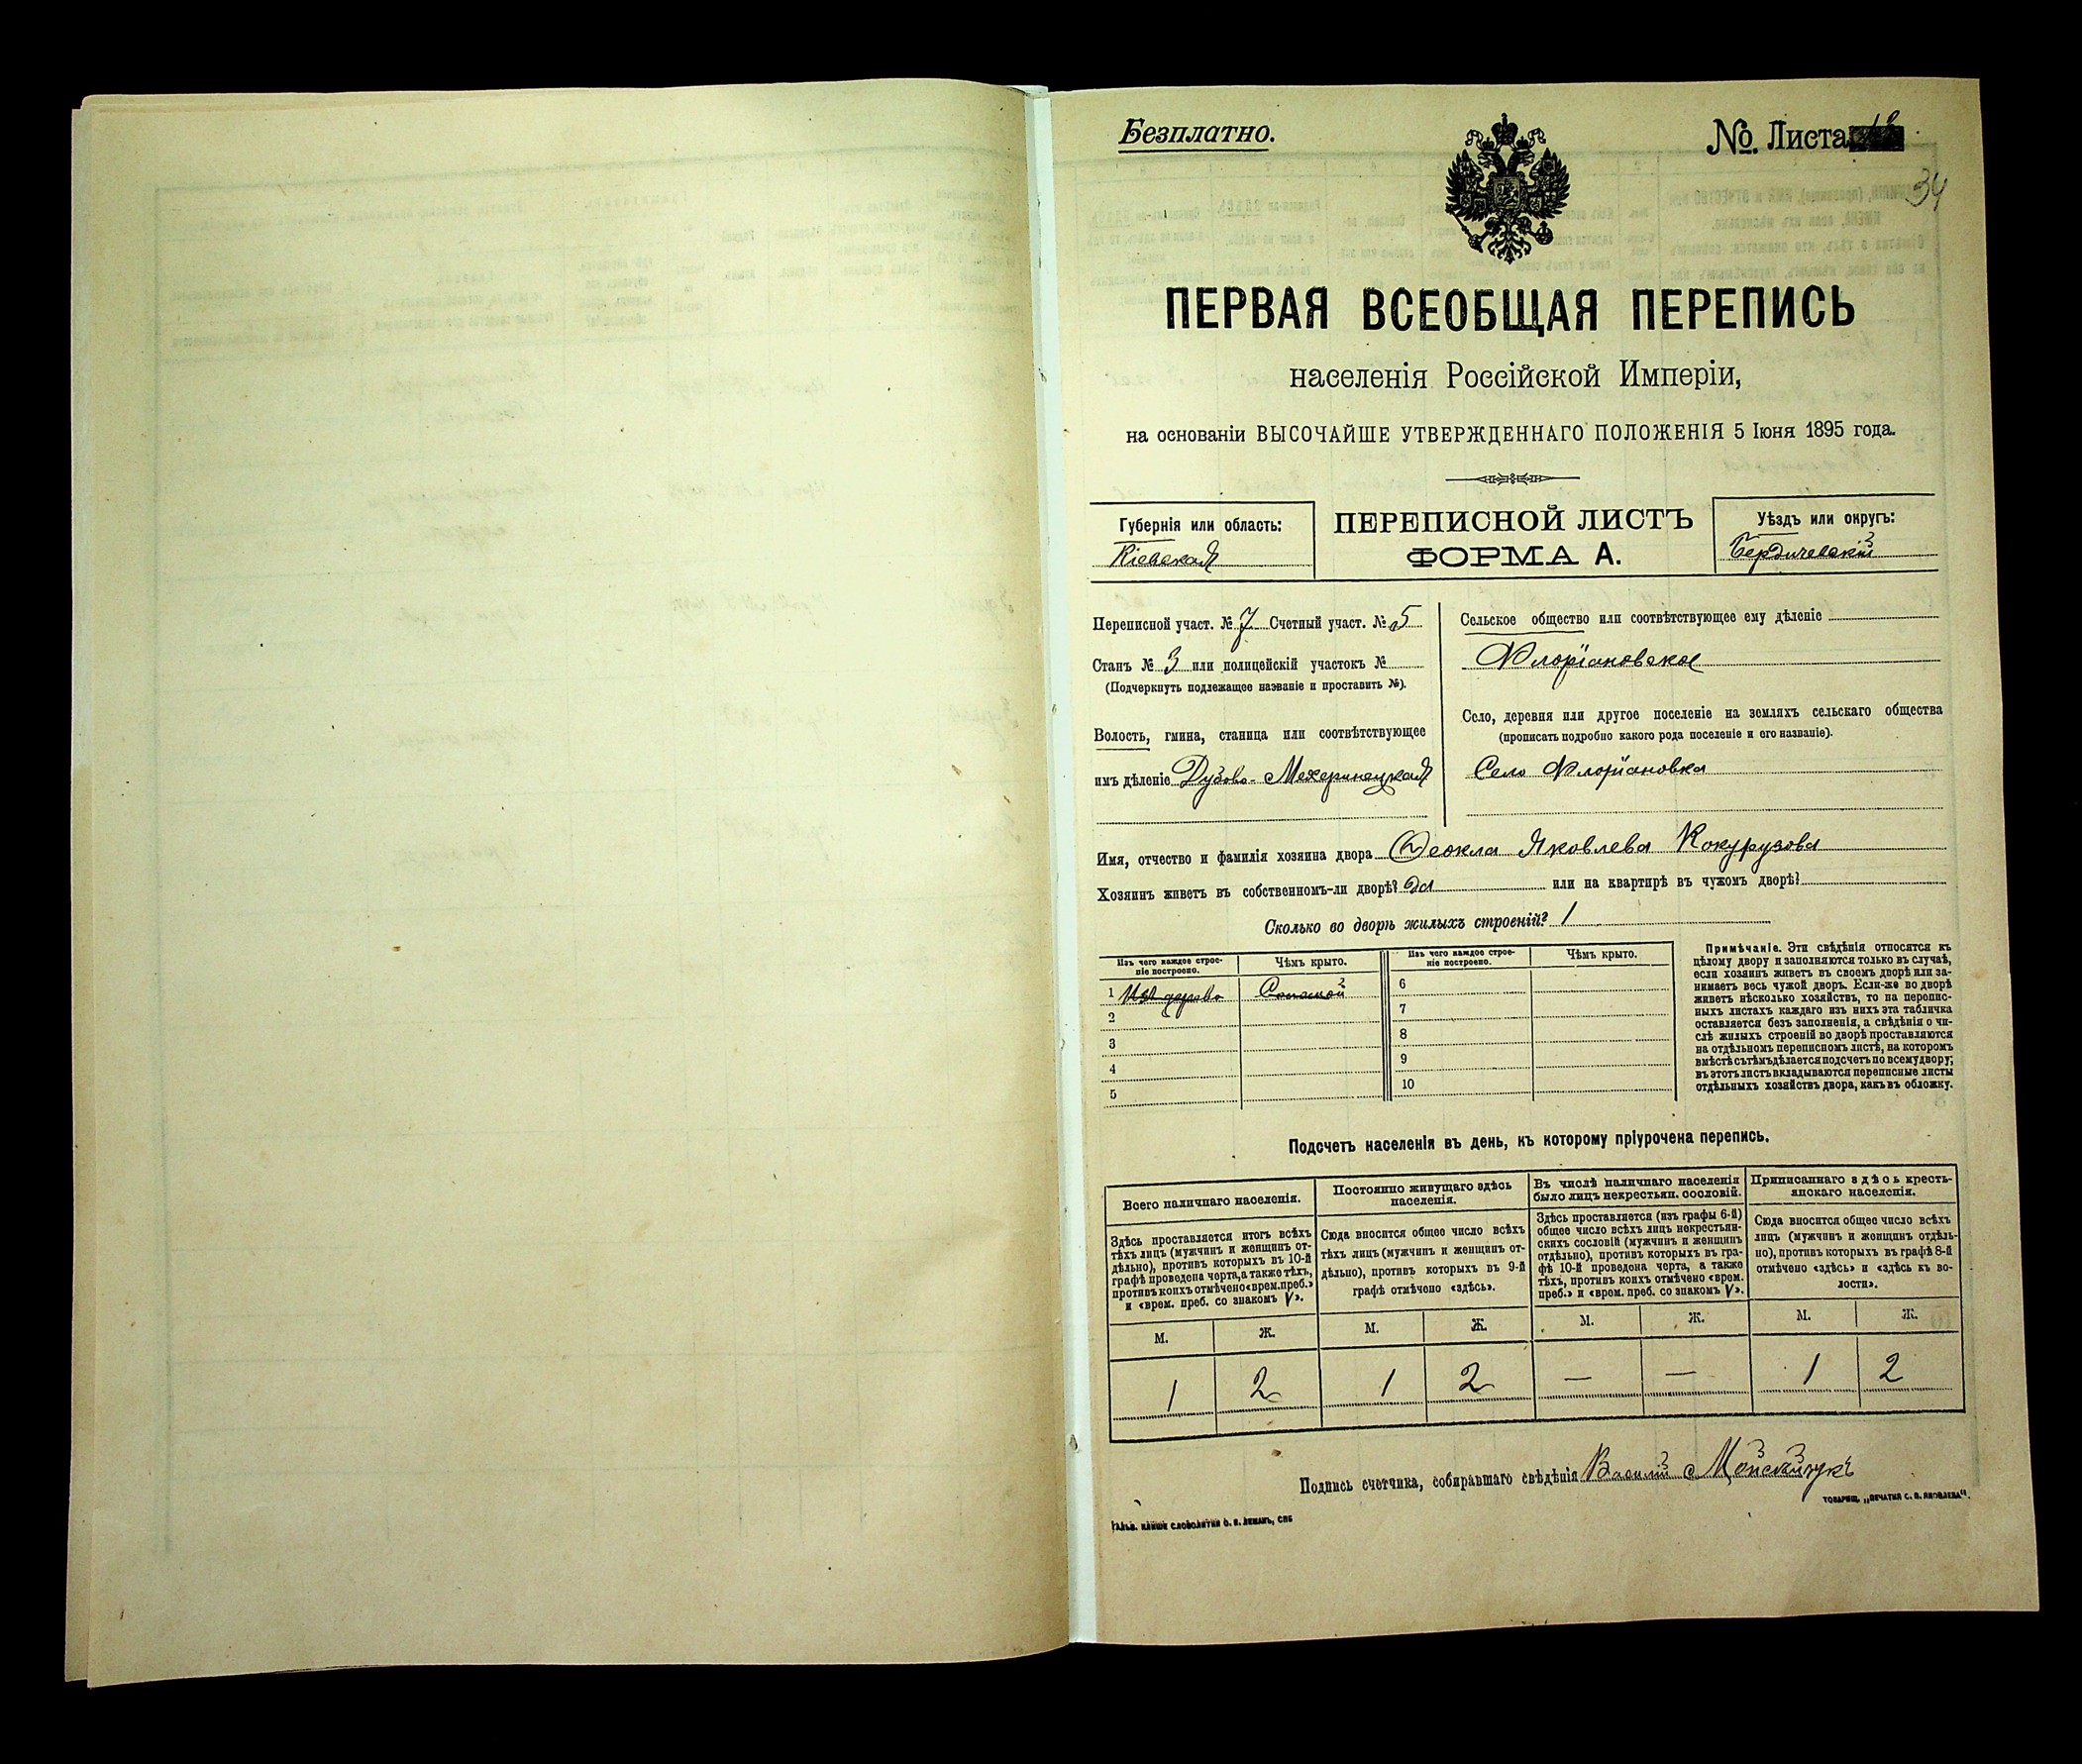 Безплатно.
No. Листа
34
ПЕРВАЯ ВСЕОБЩАЯ ПЕРЕПИСЬ
населенія Россійской Имперіи,
на основаніи ВЫСОЧАЙШЕ УТВЕРЖДЕННАГО ПОЛОЖЕНІЯ 5 Іюня 1895 года.
Губернія или область:
Кіевская
ПЕРЕПИСНОЙ ЛИСТЪ
ФОРМА А.
Уѣздъ или округъ:
Бердичевскій
Переписной участ. № 7 Счетный участ. № 5
Станъ № 3 или полицейскій участокъ №
(Подчеркнуть подлежащее названіе и проставить №).
Волость, гмина, станица или соотвѣтствующее
имъ дѣленіе Дубово-Мехеринецкая
Сельское общество или соотвѣтствующее ему дѣленіе
Флоріановское
Село, деревня или другое поселеніе на земляхъ сельскаго общества
(прописать подробно какого рода поселеніе и его названіе).
Село Флоріановка
Имя, отчество и фамилія хозяина двора Феокла Яковлева Кокурузова
Хозяинъ живетъ въ собственномъ-ли дворѣ? да или на квартирѣ въ чужомъ дворѣ?
Сколько во дворѣ жилыхъ строеній? 1
Изъ чего каждое строе-
ніе построено.
Чѣмъ крыто.
1 Изъ дерева Соломой
2
3
4
5
Изъ чего каждое строе-
ніе построено.
Чѣмъ крыто.
6
7
8
9
10
Примѣчаніе. Эти свѣдѣнія относятся къ
цѣлому двору и заполняются только въ случаѣ,
если хозяинъ живетъ въ своемъ дворѣ или за-
нимаетъ весь чужой дворъ. Если-же во дворѣ
живетъ нѣсколько хозяйствъ, то на перепис-
ныхъ листахъ каждаго изъ нихъ эта табличка
оставляется безъ заполненія, а свѣдѣнія о чи-
слѣ жилыхъ строеній во дворѣ проставляются
на отдѣльномъ переписномъ листѣ, на которомъ
вмѣстѣ съ тѣмъ дѣлается подсчетъ по всему двору;
въ этотъ листъ вкладываются переписные листы
отдѣльныхъ хозяйствъ двора, какъ въ обложку.
Подсчетъ населенія въ день, къ которому пріурочена перепись.
Всего наличнаго населенія.
Здѣсь проставляется итогъ всѣхъ
тѣхъ лицъ (мужчинъ и женщинъ от-
дѣльно), противъ которыхъ въ 10-й
графѣ проведена черта, а также тѣхъ,
противъ коихъ отмѣчено «врем. преб.»
и «врем. преб. со знакомъ V».
М. Ж.
1 2
Постоянно живущаго здѣсь
населенія.
Сюда вносится общее число всѣхъ
тѣхъ лицъ (мужчинъ и женщинъ от-
дѣльно), противъ которыхъ въ 9-й
графѣ отмѣчено «здѣсь».
М. Ж.
1 2
Въ числѣ наличнаго населенія
было лицъ некрестьян. сословій.
Здѣсь проставляется (изъ графы 6-й)
общее число всѣхъ лицъ некрестьян-
скихъ сословій (мужчинъ и женщинъ
отдѣльно), противъ которыхъ въ гра-
фѣ 10-й проведена черта, а также
тѣхъ, противъ коихъ отмѣчено «врем.
преб.» и «врем. преб. со знакомъ V».
М. Ж.
— —
Приписаннаго здѣсь кресть-
янскаго населенія.
Сюда вносится общее число всѣхъ
лицъ (мужчинъ и женщинъ отдѣль-
но), противъ которыхъ въ графѣ 8-й
отмѣчено «здѣсь» и «здѣсь къ во-
лости».
М. Ж.
1 2
Подпись счетчика, собиравшаго свѣдѣнія Василій
ТОВАРИЩ. „ПЕЧАТНЯ С. П. ЯКОВЛЕВА".
ГАЛЬВ. КЛИШЕ СЛОВОЛИТНИ О. И. ЛЕМАНЪ, СПБ